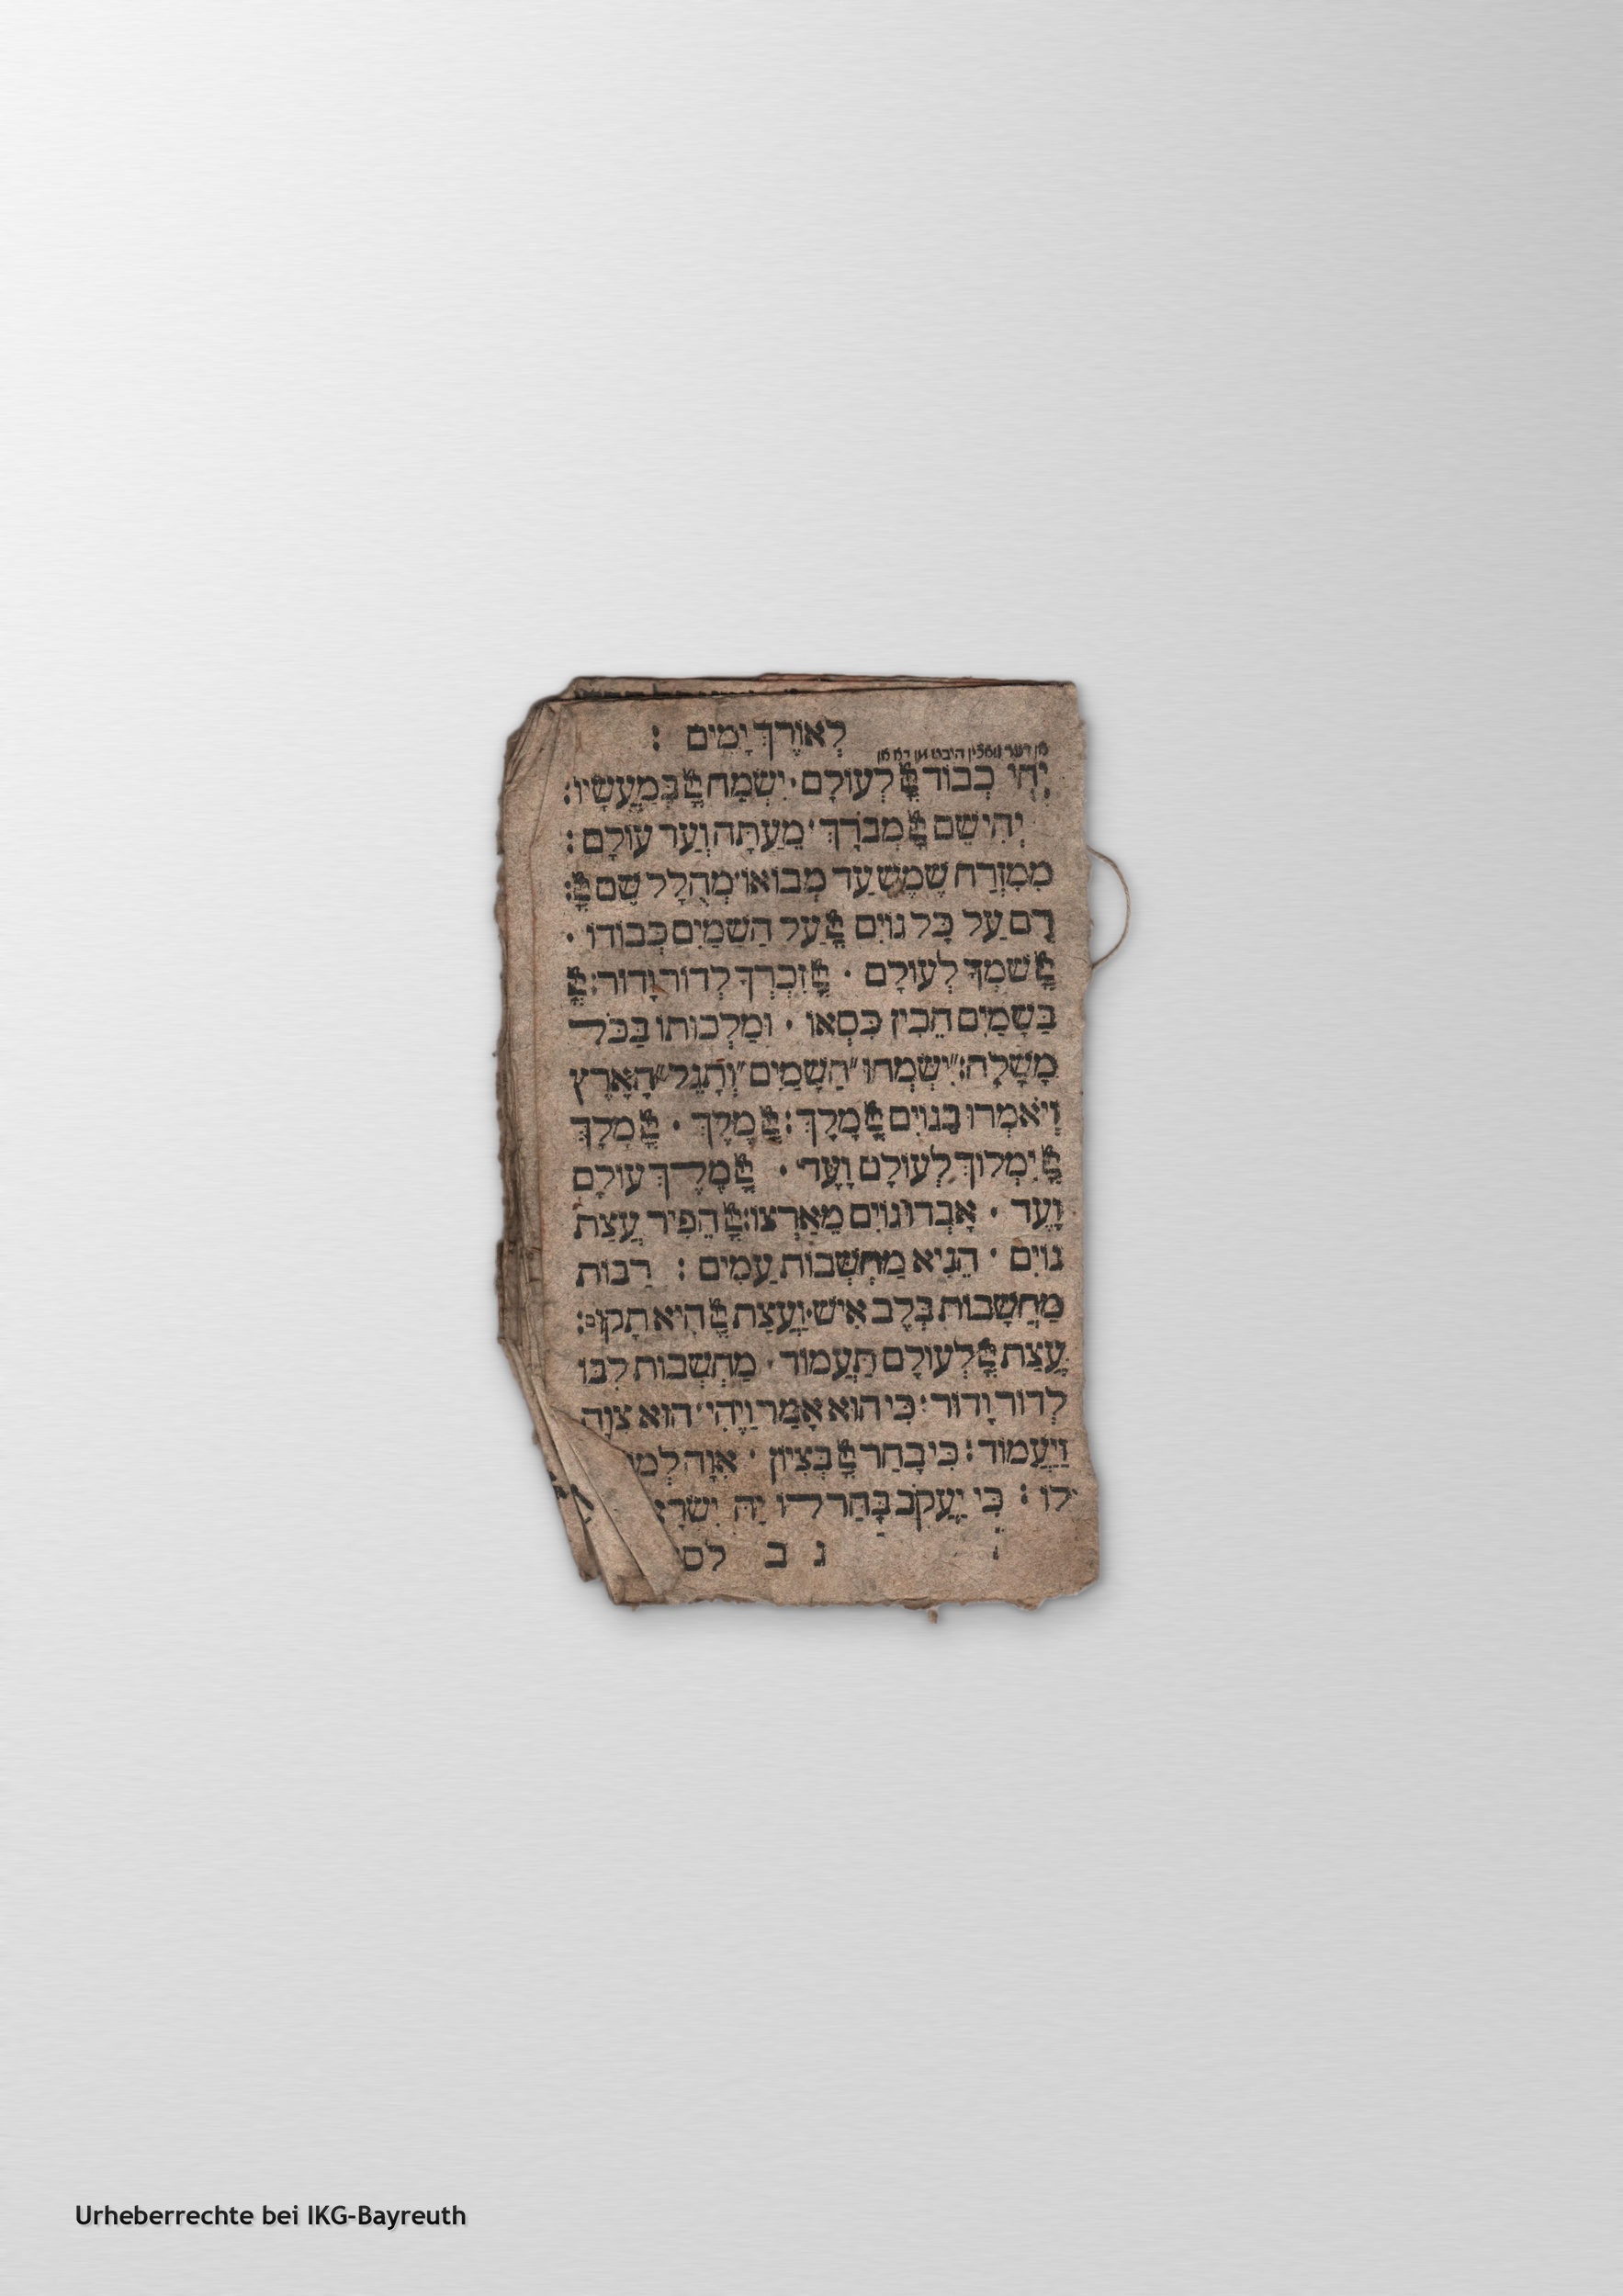 לְאוֹרֶךְ יָמִים :
יְהִי כְבוֹד יְיָ לְעוֹלָם · יִשְׂמַח יְיָ בְּמַעֲשָׂיו :
יְהִי שֵׁם יְיָ מְבֹרָךְ · מֵעַתָּה וְעַד עוֹלָם :
מִמִּזְרַח שֶׁמֶשׁ עַד מְבוֹאוֹ · מְהֻלָּל שֵׁם יְיָ :
רָם עַל כָּל גּוֹיִם יְיָ עַל הַשָּׁמַיִם כְּבוֹדוֹ ·
יְיָ שִׁמְךָ לְעוֹלָם · יְיָ זִכְרְךָ לְדוֹר וָדוֹר : יְיָ
בַּשָּׁמַיִם הֵכִין כִּסְאוֹ · וּמַלְכוּתוֹ בַּכֹּל
מָשָׁלָה : יִשְׂמְחוּ הַשָּׁמַיִם וְתָגֵל הָאָרֶץ
וְיֹאמְרוּ בַגּוֹיִם יְיָ מָלָךְ : יְיָ מֶלֶךְ · יְיָ מָלָךְ
יְיָ יִמְלוֹךְ לְעוֹלָם וָעֶד · יְיָ מֶלֶךְ עוֹלָם
וָעֶד · אָבְדוּ גוֹיִם מֵאַרְצוֹ : יְיָ הֵפִיר עֲצַת
גּוֹיִם · הֵנִיא מַחְשְׁבוֹת עַמִּים : רַבּוֹת
מַחֲשָׁבוֹת בְּלֶב אִישׁ · וַעֲצַת יְיָ הִיא תָקוּם :
עֲצַת יְיָ לְעוֹלָם תַּעֲמוֹד · מַחְשְׁבוֹת לִבּוֹ
לְדוֹר וָדוֹר : כִּי הוּא אָמַר וַיֶּהִי · הוּא צִוָּה
וַיַּעֲמוֹד : כִּי בָחַר יְיָ בְּצִיּוֹן · אִוָּהּ לְמ
לוֹ : כִּי יַעֲקֹב בָּחַר לוֹ יָהּ יִשְׂרָא
ג ב לס
Urheberrechte bei IKG-Bayreuth